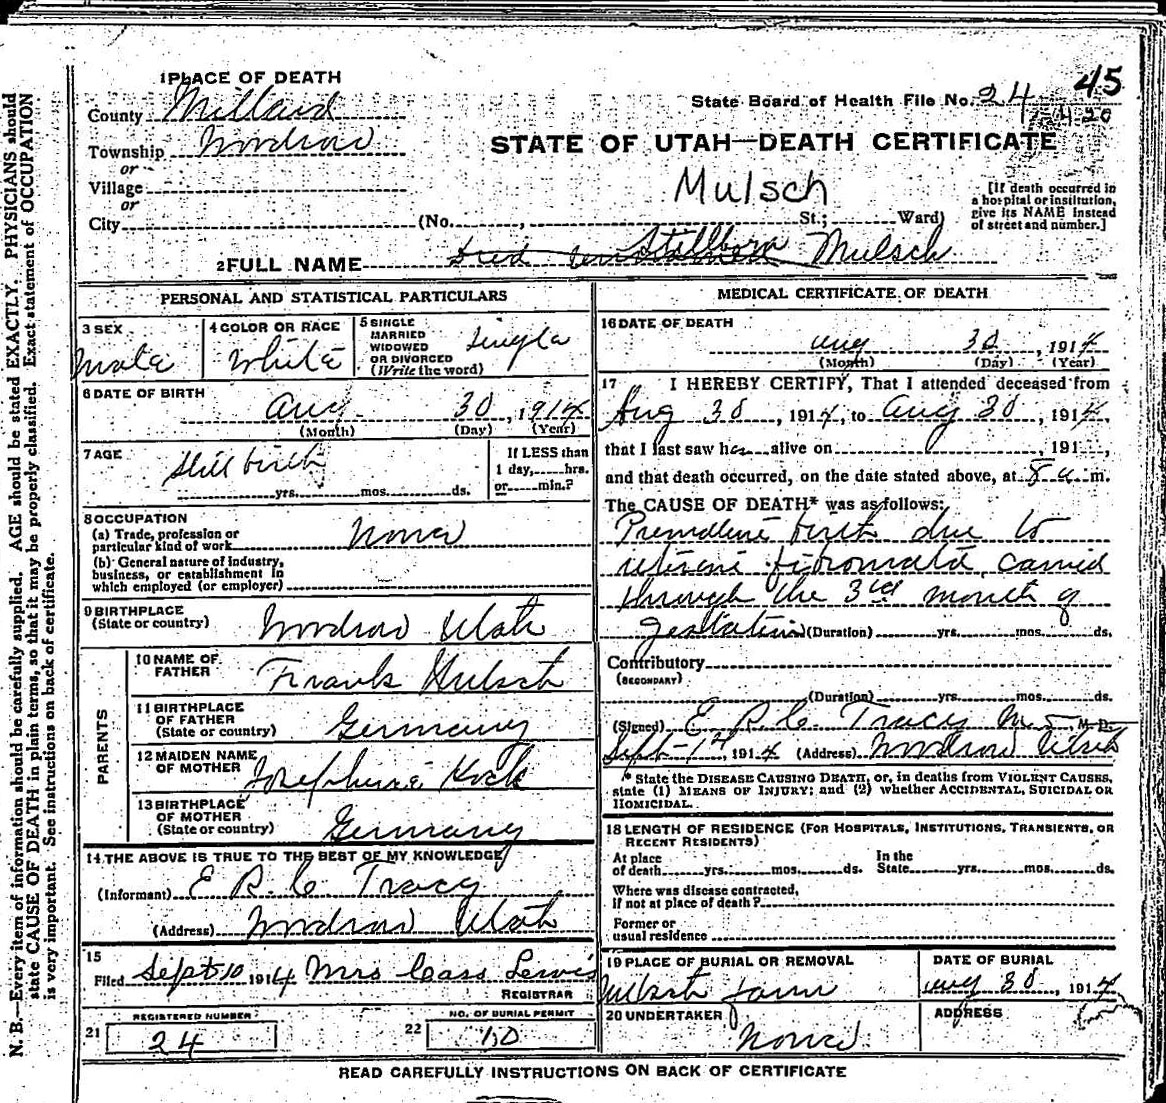 45
1 PLACE OF DEATH
County Millard
State Board of Health File No. 24
Township Woodrow
STATE OF UTAH—DEATH CERTIFICATE
or
Village
Mulsch
[If death occurred in a hospital or institution, give its NAME instead of street and number.]
or
City (No. , St.; Ward)
2 FULL NAME Stillborn Mulsch
PERSONAL AND STATISTICAL PARTICULARS
3 SEX Male
4 COLOR OR RACE White
5 SINGLE MARRIED WIDOWED OR DIVORCED (Write the word) Single
6 DATE OF BIRTH Aug 30, 1914
(Month) (Day) (Year)
7 AGE Still birth
yrs. mos. ds.
If LESS than 1 day, hrs. or min.?
8 OCCUPATION
(a) Trade, profession or particular kind of work None
(b) General nature of industry, business, or establishment in which employed (or employer)
9 BIRTHPLACE (State or country) Woodrow Utah
PARENTS
10 NAME OF FATHER Frank Mulsch
11 BIRTHPLACE OF FATHER (State or country) Germany
12 MAIDEN NAME OF MOTHER Josephine Kock
13 BIRTHPLACE OF MOTHER (State or country) Germany
14 THE ABOVE IS TRUE TO THE BEST OF MY KNOWLEDGE
(Informant) E R C Tracy
(Address) Woodrow Utah
15
Filed Sept 10 1914 Mrs Cass Lewis
REGISTRAR
REGISTERED NUMBER
21 24
NO. OF BURIAL PERMIT
22 10
MEDICAL CERTIFICATE OF DEATH
16 DATE OF DEATH
Aug 30, 1914
(Month) (Day) (Year)
17 I HEREBY CERTIFY, That I attended deceased from
Aug 30, 1914, to Aug 30, 1914,
that I last saw h alive on , 191 ,
and that death occurred, on the date stated above, at 8 a m.
The CAUSE OF DEATH* was as follows:
Premature birth due to
uterine fibromata, carried
through the 3rd month of
gestation (Duration) yrs. mos. ds.
Contributory
(SECONDARY)
(Duration) yrs. mos. ds.
(Signed) E R C Tracy M.D.
Sept 1st, 1914 (Address) Woodrow Utah
* State the DISEASE CAUSING DEATH, or, in deaths from VIOLENT CAUSES, state (1) MEANS OF INJURY; and (2) whether ACCIDENTAL, SUICIDAL OR HOMICIDAL.
18 LENGTH OF RESIDENCE (FOR HOSPITALS, INSTITUTIONS, TRANSIENTS, OR RECENT RESIDENTS)
At place of death yrs. mos. ds. In the State yrs. mos. ds.
Where was disease contracted, if not at place of death?
Former or usual residence
19 PLACE OF BURIAL OR REMOVAL
Mulsch farm
DATE OF BURIAL
Aug 30, 1914
20 UNDERTAKER
None
ADDRESS
READ CAREFULLY INSTRUCTIONS ON BACK OF CERTIFICATE
N. B.—Every item of information should be carefully supplied. AGE should be stated EXACTLY. PHYSICIANS should
state CAUSE OF DEATH in plain terms, so that it may be properly classified. Exact statement of OCCUPATION
is very important. See instructions on back of certificate.